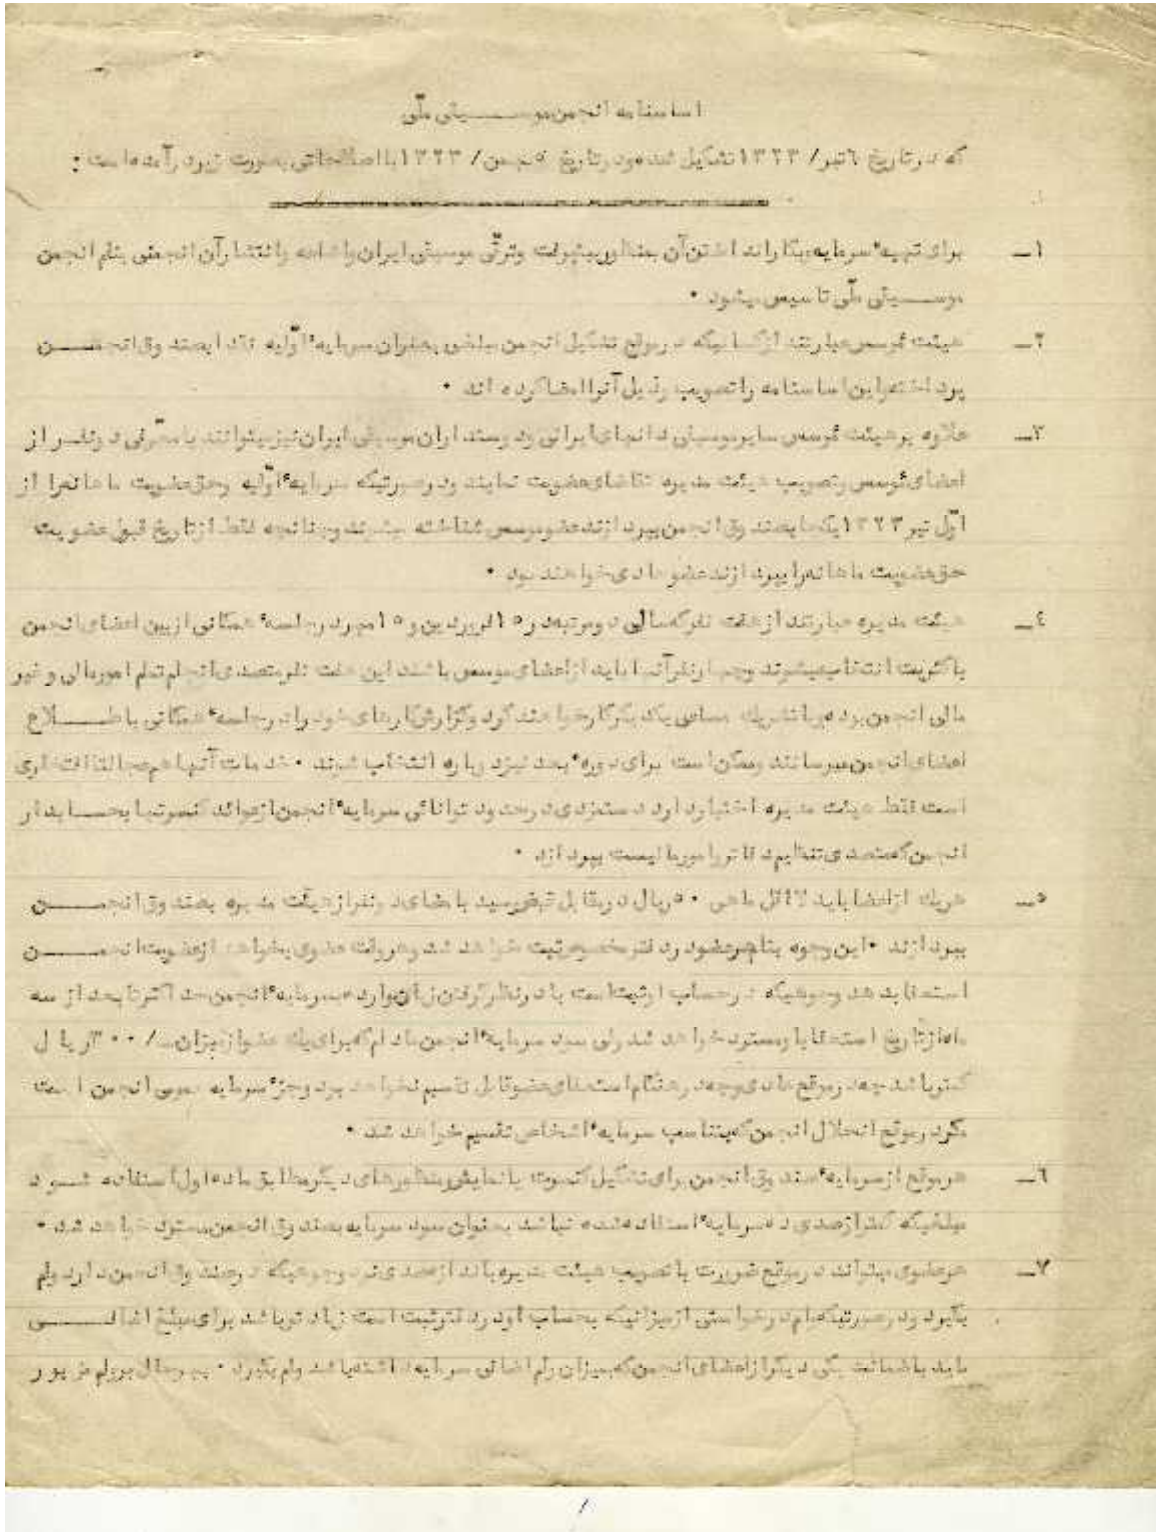 اساسنامه انجمن موسیقی ملّی
که در تاریخ ۶ تیر / ۱۳۲۳ تشکیل شده و در تاریخ ۵ بهمن / ۱۳۲۳ با اصلاحاتی بصورت زیر درآمده است :
۱ـ برای تهیه سرمایه و بکار انداختن آن بمنظور پیشرفت وترقّی موسیقی ایران واشاعه وانتشار آن انجمنی بنام انجمن
موسیقی ملّی تاسیس میشود ۰
۲ـ هیئت مؤسس عبارتند از کسانیکه در موقع تشکیل انجمن مبلغی بعنوان سرمایه اوّلیه نقدا بصندوق انجمن
پرداخته و این اساسنامه را تصویب و ذیل آنرا امضا کرده اند ۰
۳ـ علاوه بر هیئت مؤسس سایر موسیقی دانهای ایرانی ودوستداران موسیقی ایران نیز میتوانند با معرّفی دو نفر از
اعضای مؤسس وتصویب هیئت مدیره تقاضای عضویت نمایند ودر صورتیکه سرمایه اوّلیه وحق عضویت ماهانه را از
اوّل تیر ۱۳۲۳ یکجا بصندوق انجمن بپردازند عضو موسس شناخته میشوند وچنانچه فقط از تاریخ قبول عضویت
حق عضویت ماهانه را بپردازند عضو عادی خواهند بود ۰
۴ـ هیئت مدیره عبارتند از هفت نفر که سالی دو مرتبه در ۱۵ فروردین و ۱۵ مهر در جلسه همگانی از بین اعضای انجمن
با کثریت انتخاب میشوند وچهار نفر آنها باید از اعضای موسس باشند این هفت نفر متصدی انجام تمام امور مالی و غیر
مالی انجمن بوده و با تشریک مساعی یکدیگر کار خواهند کرد وگزارش کارهای خود را در جلسه همگانی باطلاع
اعضای انجمن میرسانند وممکن است برای دوره بعد نیز دوباره انتخاب شوند ۰ خدمات آنها هم مجانا افتخاری
است فقط هیئت مدیره اختیار دارد دستمزدی در حدود توانائی سرمایه انجمن از عوائد کنسرتها بحسابدار
انجمن که متصدی تنظیم دفاتر و امور مالیست بپردازد ۰
۵ـ هر یک از اعضا باید لااقل ماهی ۵۰ ریال در مقابل قبض رسید بامضای دو نفر از هیئت مدیره بصندوق انجمن
بپردازند ۰ این وجوه بنام هر عضو در دفتر مخصوص ثبت خواهد شد وهروقت عضوی بخواهد از عضویت انجمن
استعفا بدهد وجوهیکه در حساب او ثبت است با در نظر گرفتن زیان وارده بسرمایه انجمن حد اکثر تا بعد از سه
ماه از تاریخ استعفا باو مسترد خواهد شد ولی سود سرمایه انجمن مادام که برای یک عضو از میزان ـ/۳۰۰ ریال
کمتر باشد چه در موقع عادی وچه در هنگام استعفای عضو قابل تقسیم نخواهد بود وجزء سرمایه عمومی انجمن است
مگر در موقع انحلال انجمن که بتناسب سرمایه اشخاص تقسیم خواهد شد ۰
۶ـ هر موقع از سرمایه صندوق انجمن برای تشکیل کنسرت یا نمایش و منظورهای دیگر مطابق ماده اول استفاده شود
مبلغیکه کمتر از صدی ده سرمایه استفاده شده نباشد بعنوان سود سرمایه بصندوق انجمن مسترد خواهد شد ۰
۷ـ هر عضوی میتواند در موقع ضرورت با تصویب هیئت مدیره باندازه صدی نود وجوهیکه در صندوق انجمن دارد وام
بگیرد ودر صورتیکه وام درخواستی از میزانیکه بحساب او در دفتر ثبت است زیادتر باشد برای مبلغ اضافی
باید باضمانت یکی دیگر از اعضای انجمن که بمیزان وام اضافی سرمایه داشته باشد وام بگیرد ۰ بهر حال بر وام مزبور